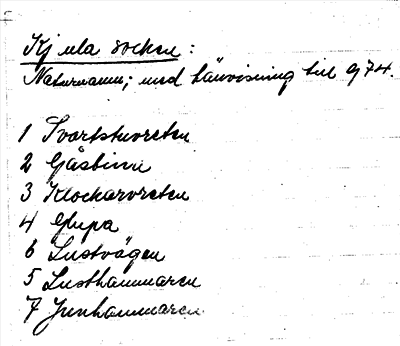 Kjula socken:
Naturnamn; med hänvisning till gj 74.
1 Svartstuvreten
2 Gåsbinn
3 Klockarvreten
4 Glupa
6 Lustvägen
5 Lusthammaren
7 Junhammaren